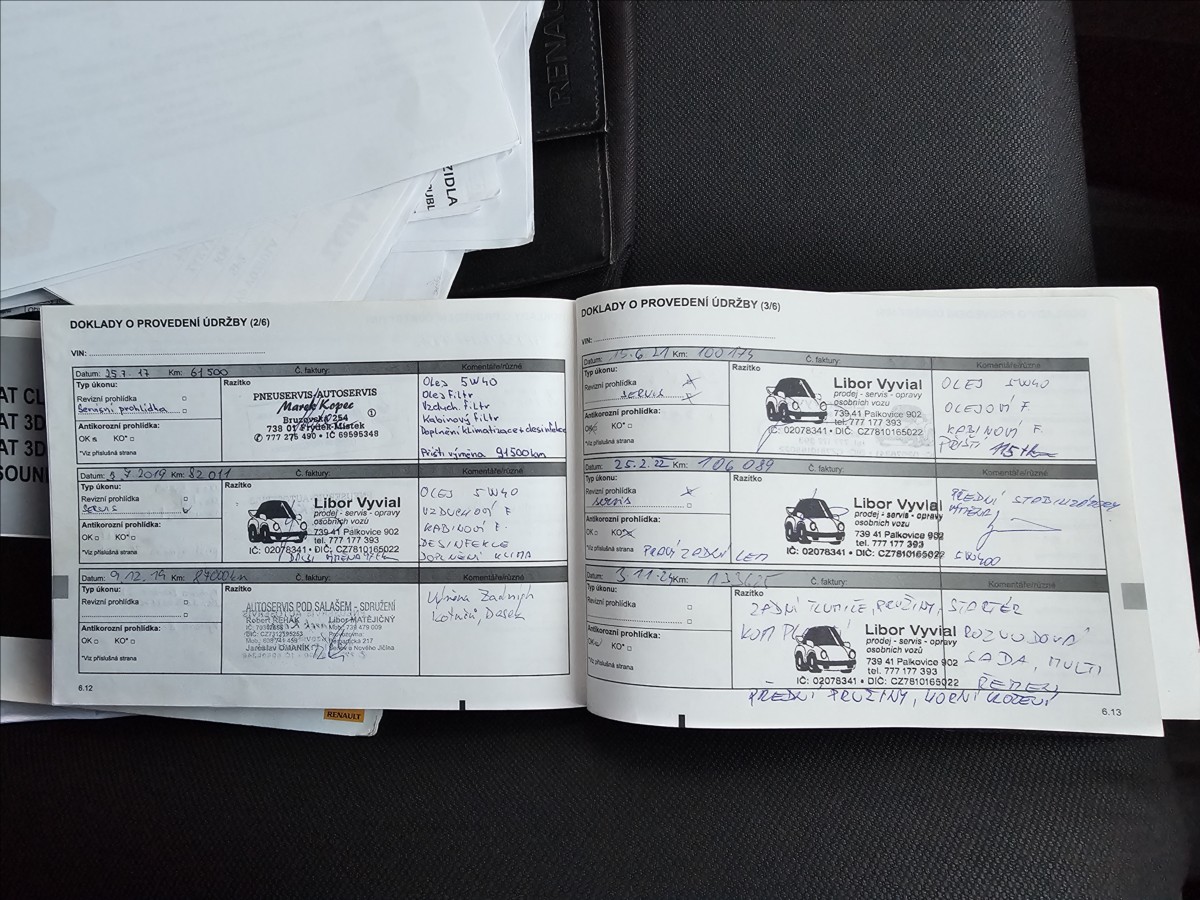 RENAU
ZIDLA
OUBL
AT CL
AT 3D
AT 3D
SOUN
DOKLADY O PROVEDENÍ ÚDRŽBY (2/6)
VIN:
Datum: 25.7. 17 Km: 61 500 Č. faktury: Komentáře/různé
Typ úkonu:
Revizní prohlídka
Servisní prohlídka
Antikorozní prohlídka:
OK KO*
*Viz příslušná strana
Razítko
PNEUSERVIS/AUTOSERVIS
Marek Kopec
Bruzovská 254
738 01 Frýdek-Místek
777 275 490 • IČ 69595348
Olej 5W40
Olej Filtr
Vzduch. Filtr
Kabinový Filtr
Doplnění klimatizace + desinfekce
Příští výměna 91500km
Datum: 3 7 2019 Km: 82 011 Č. faktury: Komentáře/různé
Typ úkonu:
Revizní prohlídka
Servis
Antikorozní prohlídka:
OK KO*
*Viz příslušná strana
Razítko
Libor Vyvial
prodej - servis - opravy
osobních vozů
739 41 Palkovice 902
tel. 777 177 393
IČ: 02078341 • DIČ: CZ7810165022
OLEJ 5W40
VZDUCHOVÝ F
KABINOVÝ F.
DESINFEKCE
DOPLNĚNÍ KLIMA
Datum: 9. 12. 19 Km: 87000km Č. faktury: Komentáře/různé
Typ úkonu:
Revizní prohlídka
Antikorozní prohlídka:
OK KO*
*Viz příslušná strana
Razítko
AUTOSERVIS POD SALAŠEM - SDRUŽENÍ
Robert ŘEHÁK Libor MATĚJIČNÝ
Jaroslav OMÁNÍK
Výměna Zadních
kotoučů, Desek
6.12
RENAULT
DOKLADY O PROVEDENÍ ÚDRŽBY (3/6)
VIN:
Datum: 15.6 21 Km: 100174 Č. faktury: Komentáře/různé
Typ úkonu:
Revizní prohlídka
SERVIS
Antikorozní prohlídka:
OK KO*
*Viz příslušná strana
Razítko
Libor Vyvial
prodej - servis - opravy
osobních vozů
739 41 Palkovice 902
tel. 777 177 393
IČ: 02078341 • DIČ: CZ7810165022
OLEJ 5W40
OLEJOVÝ F.
KABINOVÝ F.
PŘÍŠTÍ
Datum: 25.2. 22 Km: 106 089 Č. faktury: Komentáře/různé
Typ úkonu:
Revizní prohlídka
servis
Antikorozní prohlídka:
OK KO*
*Viz příslušná strana
PRAVÝ ZADNÍ LEM
Razítko
Libor Vyvial
prodej - servis - opravy
osobních vozů
739 41 Palkovice 902
tel. 777 177 393
IČ: 02078341 • DIČ: CZ7810165022
PŘEDNÍ STABILIZÁTORY
VÝMĚNA
5W400
Datum: 3 11. 24 Km: 133625 Č. faktury: Komentáře/různé
Typ úkonu:
Revizní prohlídka
Antikorozní prohlídka:
OK KO*
*Viz příslušná strana
Razítko
ZADNÍ TLUMIČE, PRUŽINY,
Libor Vyvial
prodej - servis - opravy
osobních vozů
739 41 Palkovice 902
tel. 777 177 393
IČ: 02078341 • DIČ: CZ7810165022
STARTÉR
ROZVODOVÁ
SADA, MULTI
ŘEMEN
PŘEDNÍ PRUŽINY, HORNÍ ULOŽENÍ
6.13